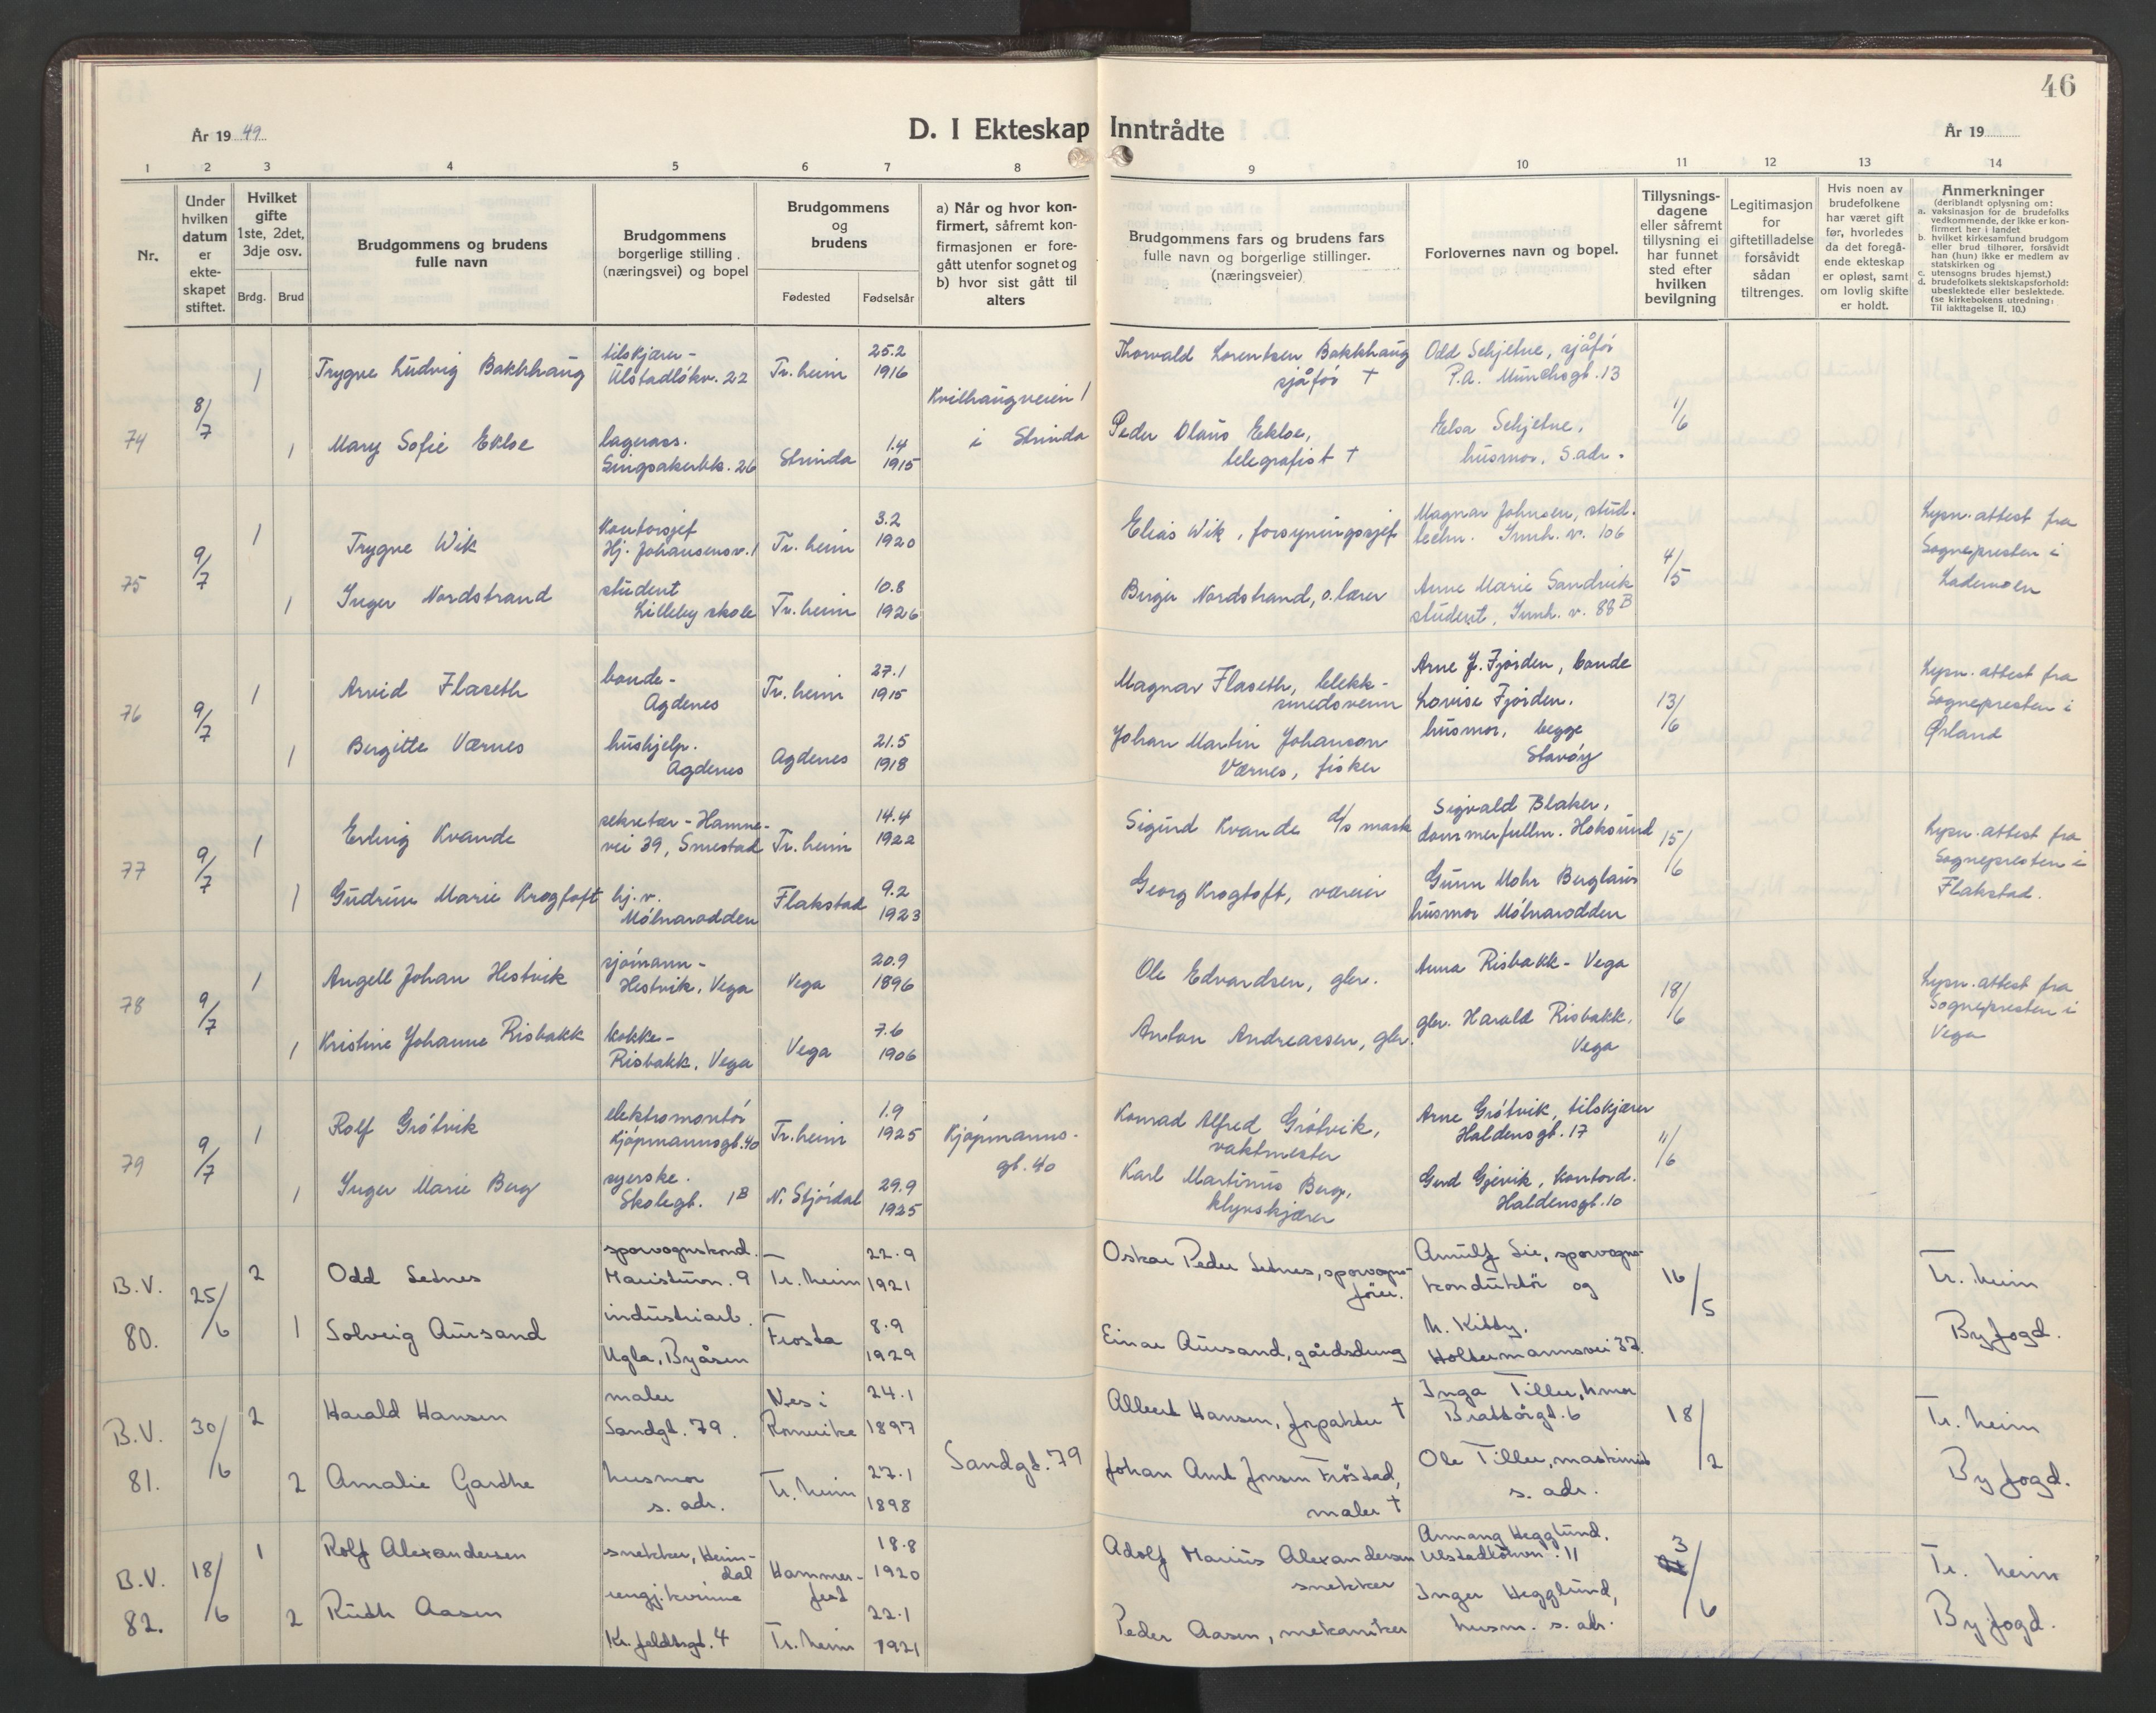 46
År 1949
D. I Ekteskap Inntrådte
År 19
1 2 3 4 5 6 7 8 9 10 11 12 13 14
Nr.
Under hvilken datum er ekte-skapet stiftet.
Hvilket gifte 1ste, 2det, 3dje osv.
Brdg. Brud
Brudgommens og brudens fulle navn
Brudgommens borgerlige stilling (næringsvei) og bopel
Brudgommens og brudens
Fødested Fødselsår
a) Når og hvor kon-firmert, såfremt kon-firmasjonen er fore-gått utenfor sognet og
b) hvor sist gått til alters
Brudgommens fars og brudens fars fulle navn og borgerlige stillinger. (næringsveier)
Forlovernes navn og bopel.
Tillysnings-dagene eller såfremt tillysning ei har funnet sted efter hvilken bevilgning
Legitimasjon for giftetilladelse forsåvidt sådan tiltrenges.
Hvis noen av brudefolkene har været gift før, hvorledes da det foregå-ende ekteskap er opløst, samt om lovlig skifte er holdt.
Anmerkninger
(deriblandt oplysning om:
a. vaksinasjon for de brudefolks vedkommende, der ikke er kon-firmert her i landet
b. hvilket kirkesamfund brudgom eller brud tilhører, forsåvidt han (hun) ikke er medlem av statskirken og
c. utensogns brudes hjemst.)
d. brudefolkets slektskapsforhold: ubeslektede eller beslektede. (se kirkebokens utredning: Til iakttagelse II, 10.)
74 8/7
1 Trygve Ludvig Bakkhaug
tilskjærer - Ulstadløkv. 22
Tr.heim 25.2 1916
Kvilhaugveien 1 i Strinda
Thorvald Lorentzen Bakkhaug sjåfør †
Odd Schjetne, sjåfør P.A. Munchsgt. 13
1/6
1 Mary Sofie Ekloe
lagerass. Singsakerbk. 26
Strinda 1.4 1915
Peder Olaus Ekloe, telegrafist †
Elsa Schjetne, husmor, S.adr.
75 9/7
1 Trygve Wik
Kontorsjef Hj. Johansensv. 1
Tr.heim 3.2 1920
Elias Wik, forsyningssjef
Magnar Johnsen, stud. techn. Innh. v. 106
4/5
Lysn.attest fra Sognepresten i Lademoen
1 Inger Nordstrand
student Lilleby skole
Tr.heim 10.8 1926
Birger Nordstrand, o.lærer
Anne Marie Sandvik student, Innh. v. 88 B
76 9/7
1 Arvid Flaseth
bonde - Agdenes
Tr.heim 27.1 1915
Magnar Flaseth, blekk-smedsvenn
Arne J. Fjorden, bonde
Lovise Fjorden, husmor, begge Stavøy
13/6
Lysn.attest fra Sognepresten i Ørland
1 Bergitte Værnes
hushjelp. Agdenes
Agdenes 21.5 1918
Johan Martin Johanson Værnes, fisker
77 9/7
1 Erling Kvande
sekretær - Hamne-vei 39, Smestad
Tr.heim 14.4 1922
Sigurd Kvande d/s mask
Sigvald Blaker, dommerfullm. Hoksund
15/6
Lysn.attest fra Sognepresten i Flakstad.
1 Gudrun Marie Krogtoft
hj.v. Mølnarodden
Flakstad 9.2 1923
Georg Krogtoft, væreier
Gunn Mohr Berglaus husmor Mølnarodden
78 9/7
1 Angell Johan Hestvik
sjømann - Hestvik, Vega
Vega 20.9 1896
Ole Edvardsen, gbr.
Anna Risbakk - Vega
18/6
Lysn.attest fra Sognepresten i Vega
1 Kristine Johanne Risbakk
kokke - Risbakk, Vega
Vega 7.6 1906
Anton Andreassen, gbr.
gbr. Harald Risbakk, Vega
79 9/7
1 Rolf Grøtvik
elektromontør Kjøpmannsgt. 40
Tr.heim 1.9 1925
Kjøpmanns-gt. 40
Konrad Alfred Grøtvik, vaktmester
Arne Grøtvik, tilskjærer Haldensgt. 17
11/6
1 Inger Marie Berg
syerske. Skolegt. 1 B
N. Stjørdal 29.9 1925
Karl Martinus Berg, klyvskjærer
Gerd Gjervik, kontord. Haldensgt. 10
B.V. 80. 25/6
2 Odd Setnes
sporvognskond. Maristuvn. 9
Tr.heim 22.9 1921
Oskar Peder Setnes, sporvogns-fører.
Arnulf Lie, sporvogns-konduktør og
h. Kitty, Holtermannsvei 32.
16/5
Tr.heim Byfogd.
1 Solveig Aursand
industriarb. Ugla, Byåsen
Frosta 8.9 1929
Einar Aursand, gårdsdreng
B.V. 81. 30/6
2 Harald Hansen
maler Sandgt. 79.
Nes i Romerike 24.1 1897
Sandgt. 79
Albert Hansen, forpakter †
Inga Tiller, hmor Brattørgt. 6
18/2
Tr.heim Byfogd.
2 Amalie Garthe
husmor s. adr.
Tr.heim 27.1 1898
Johan Arnt Jonsen Frøstad, maler †
Ole Tiller, maskinist s. adr.
B.V. 82. 18/6
1 Rolf Alexandersen
snekker, Heim-dal
Hammer-fest 18.8 1920
Adolf Marius Alexandersen snekker
Annang Hegglund, Ulstadløkvn. 11
3/6
Tr.heim Byfogd.
2 Ruth Aasen
rengj.kvinne Kr. feldtsgt. 4
Tr.heim 22.1 1921
Peder Aasen, mekaniker
Inger Hegglund, husm. s. adr.